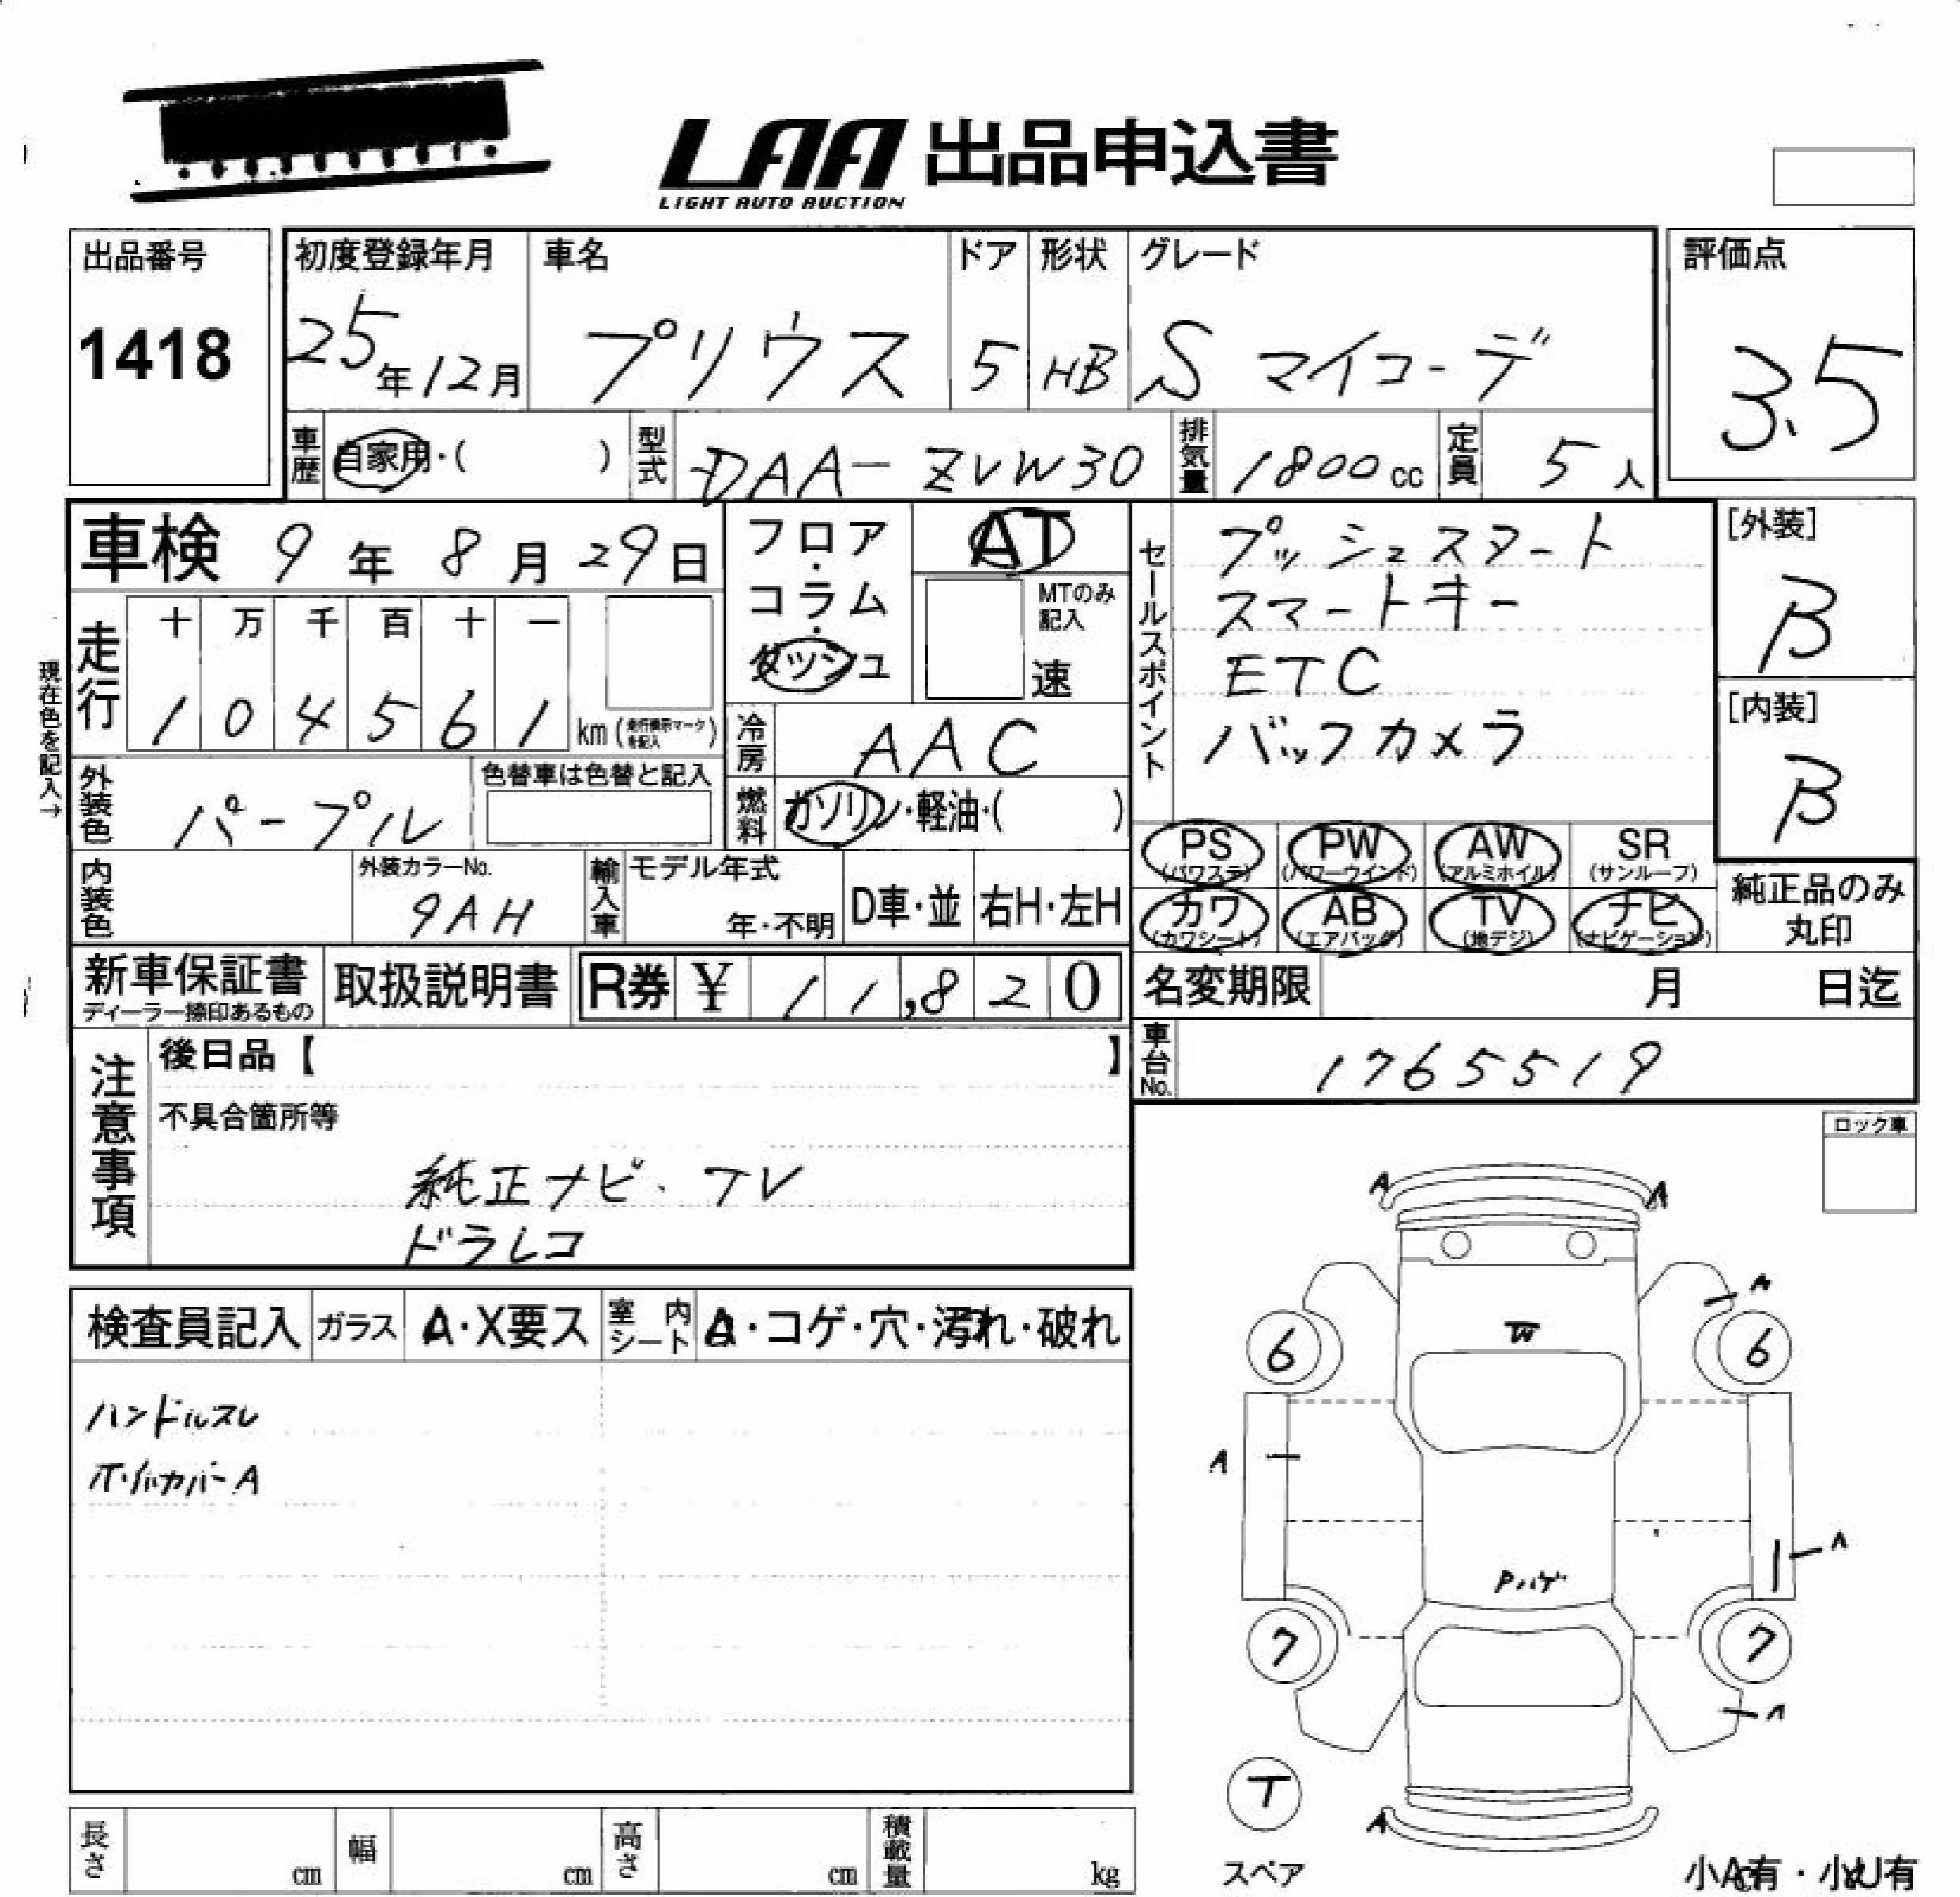 LAA 出品申込書
LIGHT AUTO AUCTION
出品番号
1418
初度登録年月
25年12月
車名
プリウス
ドア
5
形状
HB
グレード
S マイコーデ
評価点
3.5
車歴
自家用・( )
型式
DAA-ZVW30
排気量
1800cc
定員
5人
車検 9年 8月 29日
フロア・コラム・ダッシュ
AT
MTのみ記入
速
セールスポイント
プッシュスタート
スマートキー
ETC
バックカメラ
[外装]
B
[内装]
B
現在色を記入→
走行
十 万 千 百 十 一
1 0 4 5 6 1 km (走行表示マークを記入)
冷房
AAC
燃料
ガソリン・軽油・( )
外装色
パープル
色替車は色替と記入
内装色
外装カラーNo.
9AH
輸入車
モデル年式
年・不明
D車・並
右H・左H
PS (パワステ)
PW (パワーウインド)
AW (アルミホイル)
SR (サンルーフ)
カワ (カワシート)
AB (エアバッグ)
TV (地デジ)
ナビ (ナビゲーション)
純正品のみ
丸印
新車保証書
ディーラー捺印あるもの
取扱説明書
R券 ¥ 11,820
名変期限 月 日迄
車台No.
1765519
注意事項
後日品【 】
不具合箇所等
純正ナビ・TV
ドラレコ
ロック車
検査員記入
ガラス
A・X要ス
室内シート
・コゲ・穴・汚れ・破れ
ハンドルスレ
A
A A
A
6 6
W
A
A
Pハゲ
7 7
A
T
スペア
A
小A有・小U有
長さ cm
幅 cm
高さ cm
積載量 kg